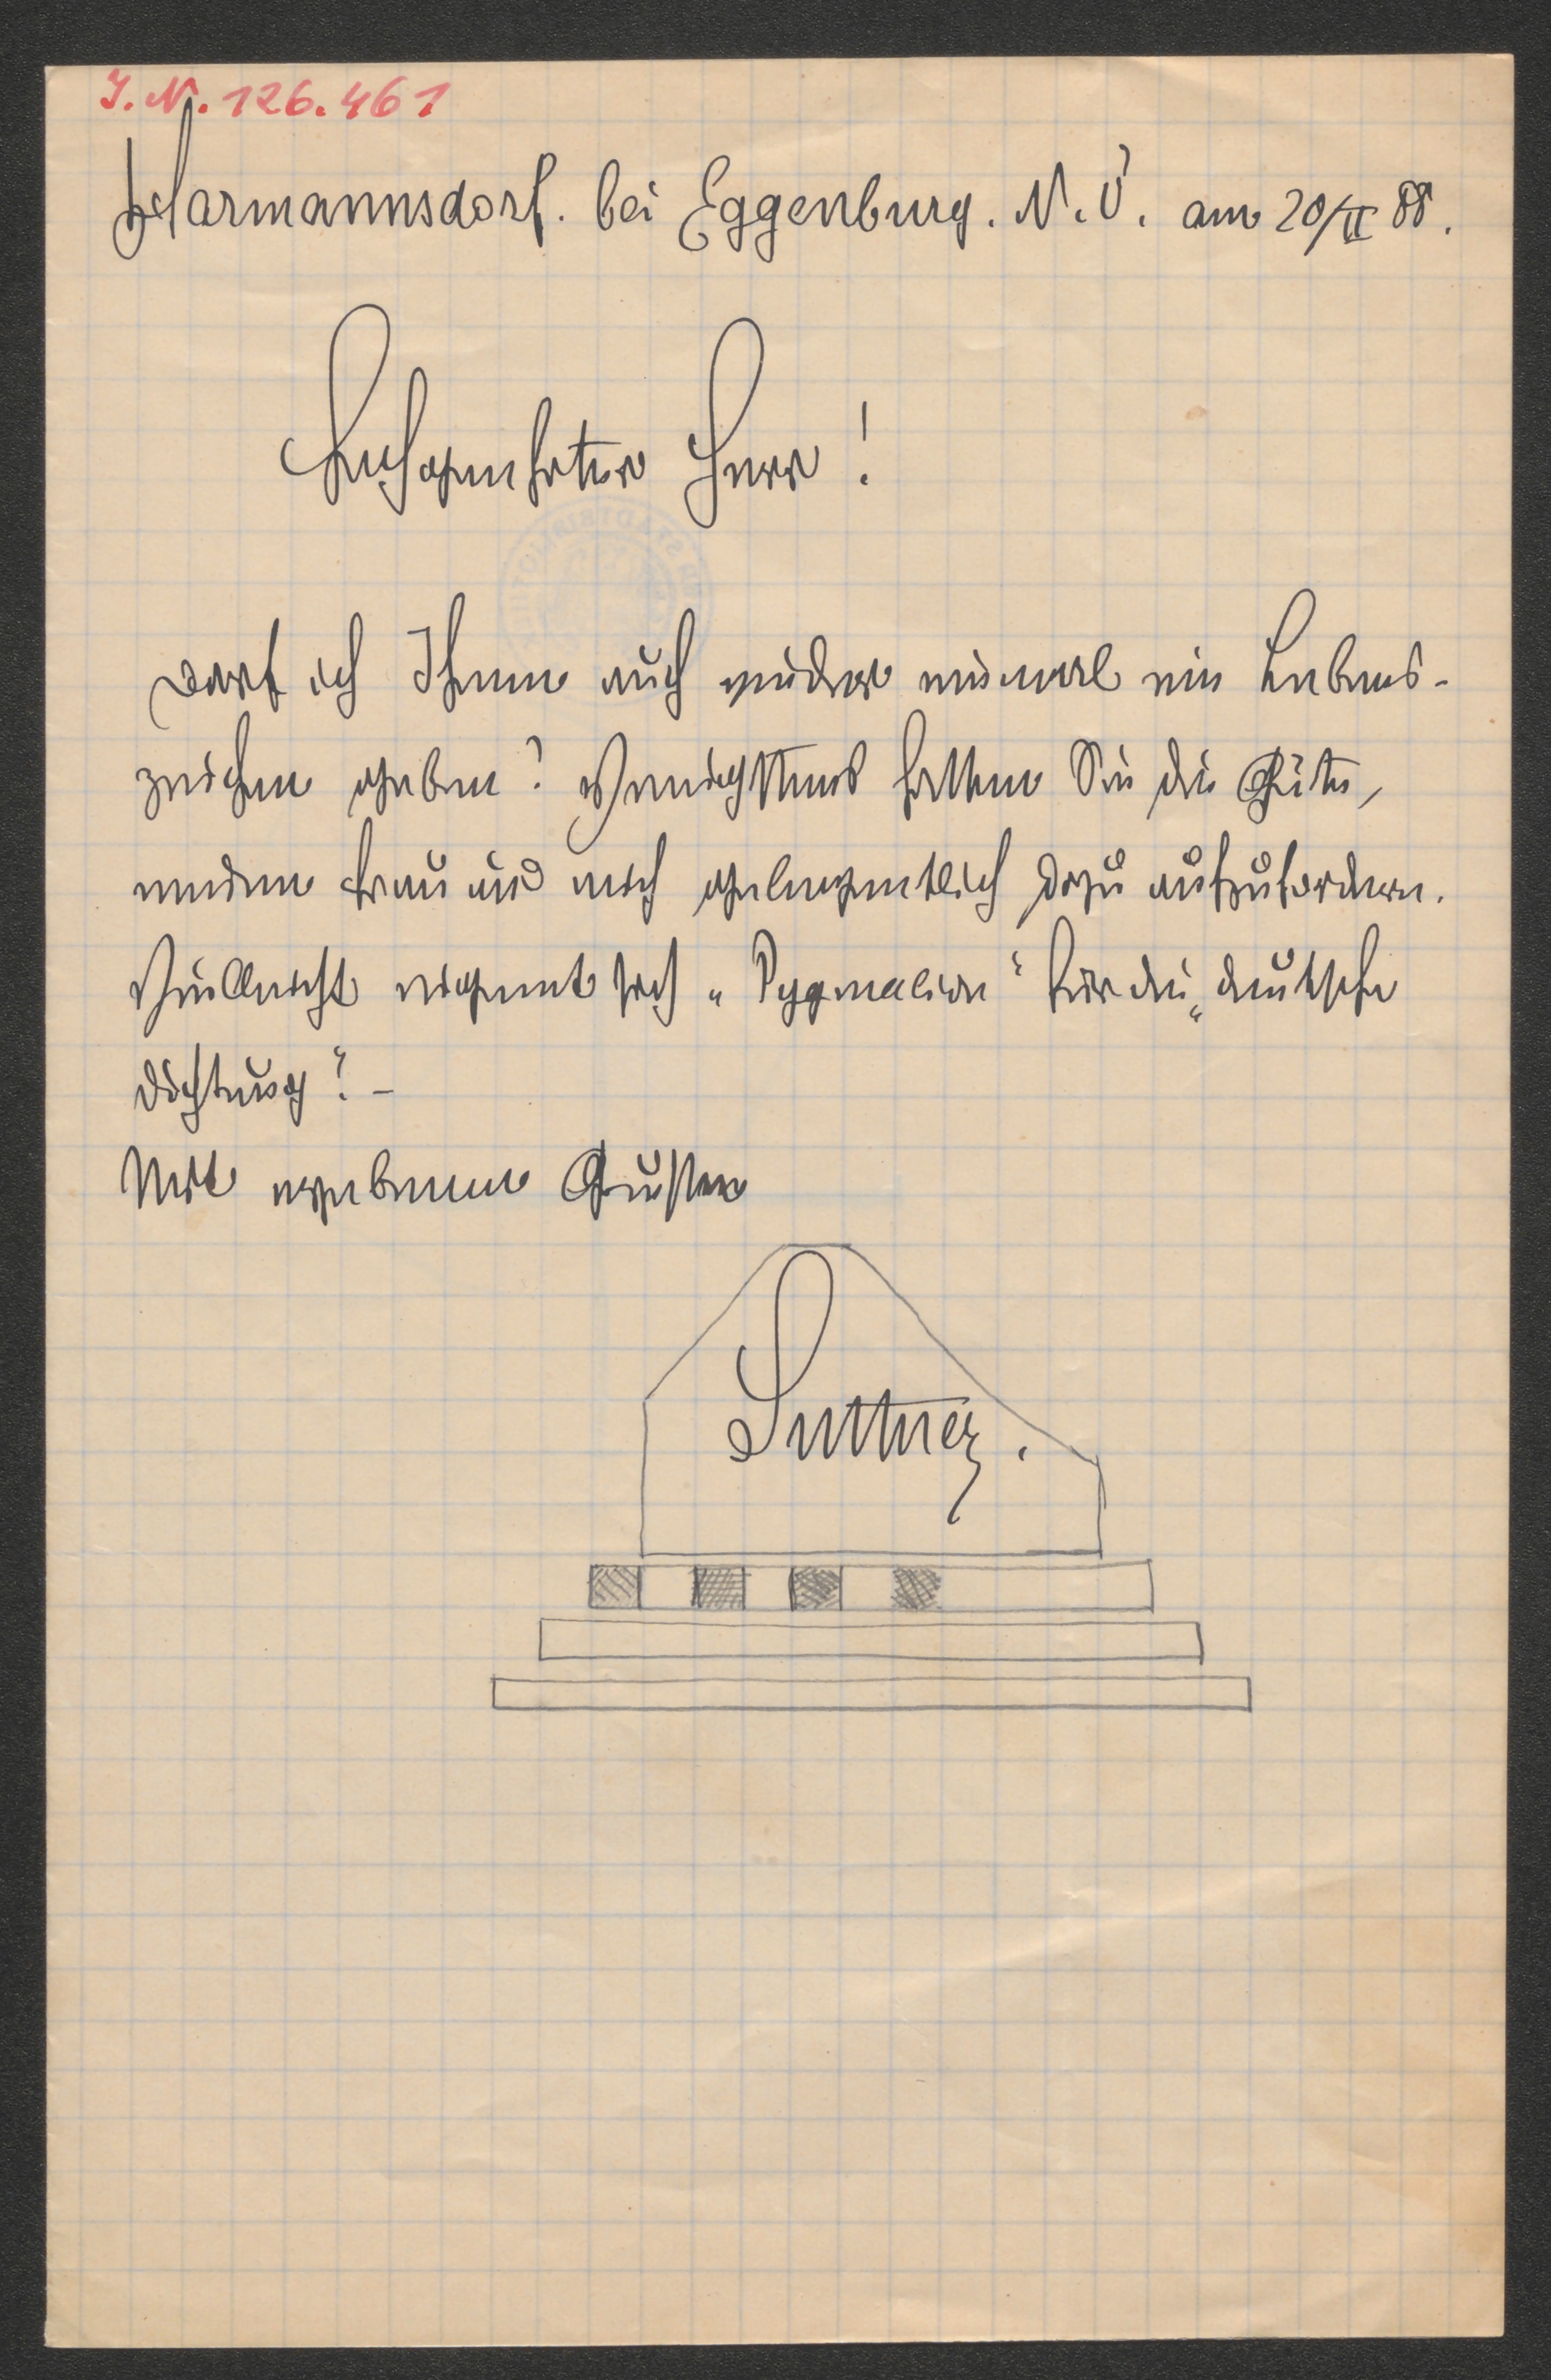 I. N. 126.461
Harmannsdorf. bei Eggenburg. N. Ö. am 20/II 88.
Hochgeehrter Herr!
Darf ich Ihnen auch wieder einmal ein Lebens-
zeichen geben? Wenigstens hatten Sie die Güte,
meine Frau und mich gelegentlich dazu aufzufordern.
Vielleicht eignet sich „Pygmalion“ für die „deutsche
Dichtung“? –
Mit ergebenen Grüßen
Suttner.